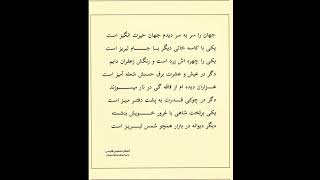 جهان را سر به سر دیدم جهان حیرت انگیز است
یکی با کاسه خالی دیگر با جام لبریز است
یکی را چهره اش زرد است و رنگش زعفران دایم
دگر در عیش و عشرت برق حسنش شعله آمیز است
هزاران دیده ام از فاقه گی در نار میسوزند
دگر در چوکی قدرت به پشت دفتر میز است
یکی برتخت شاهی با غرور خویش بنشسته
دیگر دیوانه در بازار همچو شمس تبریز است